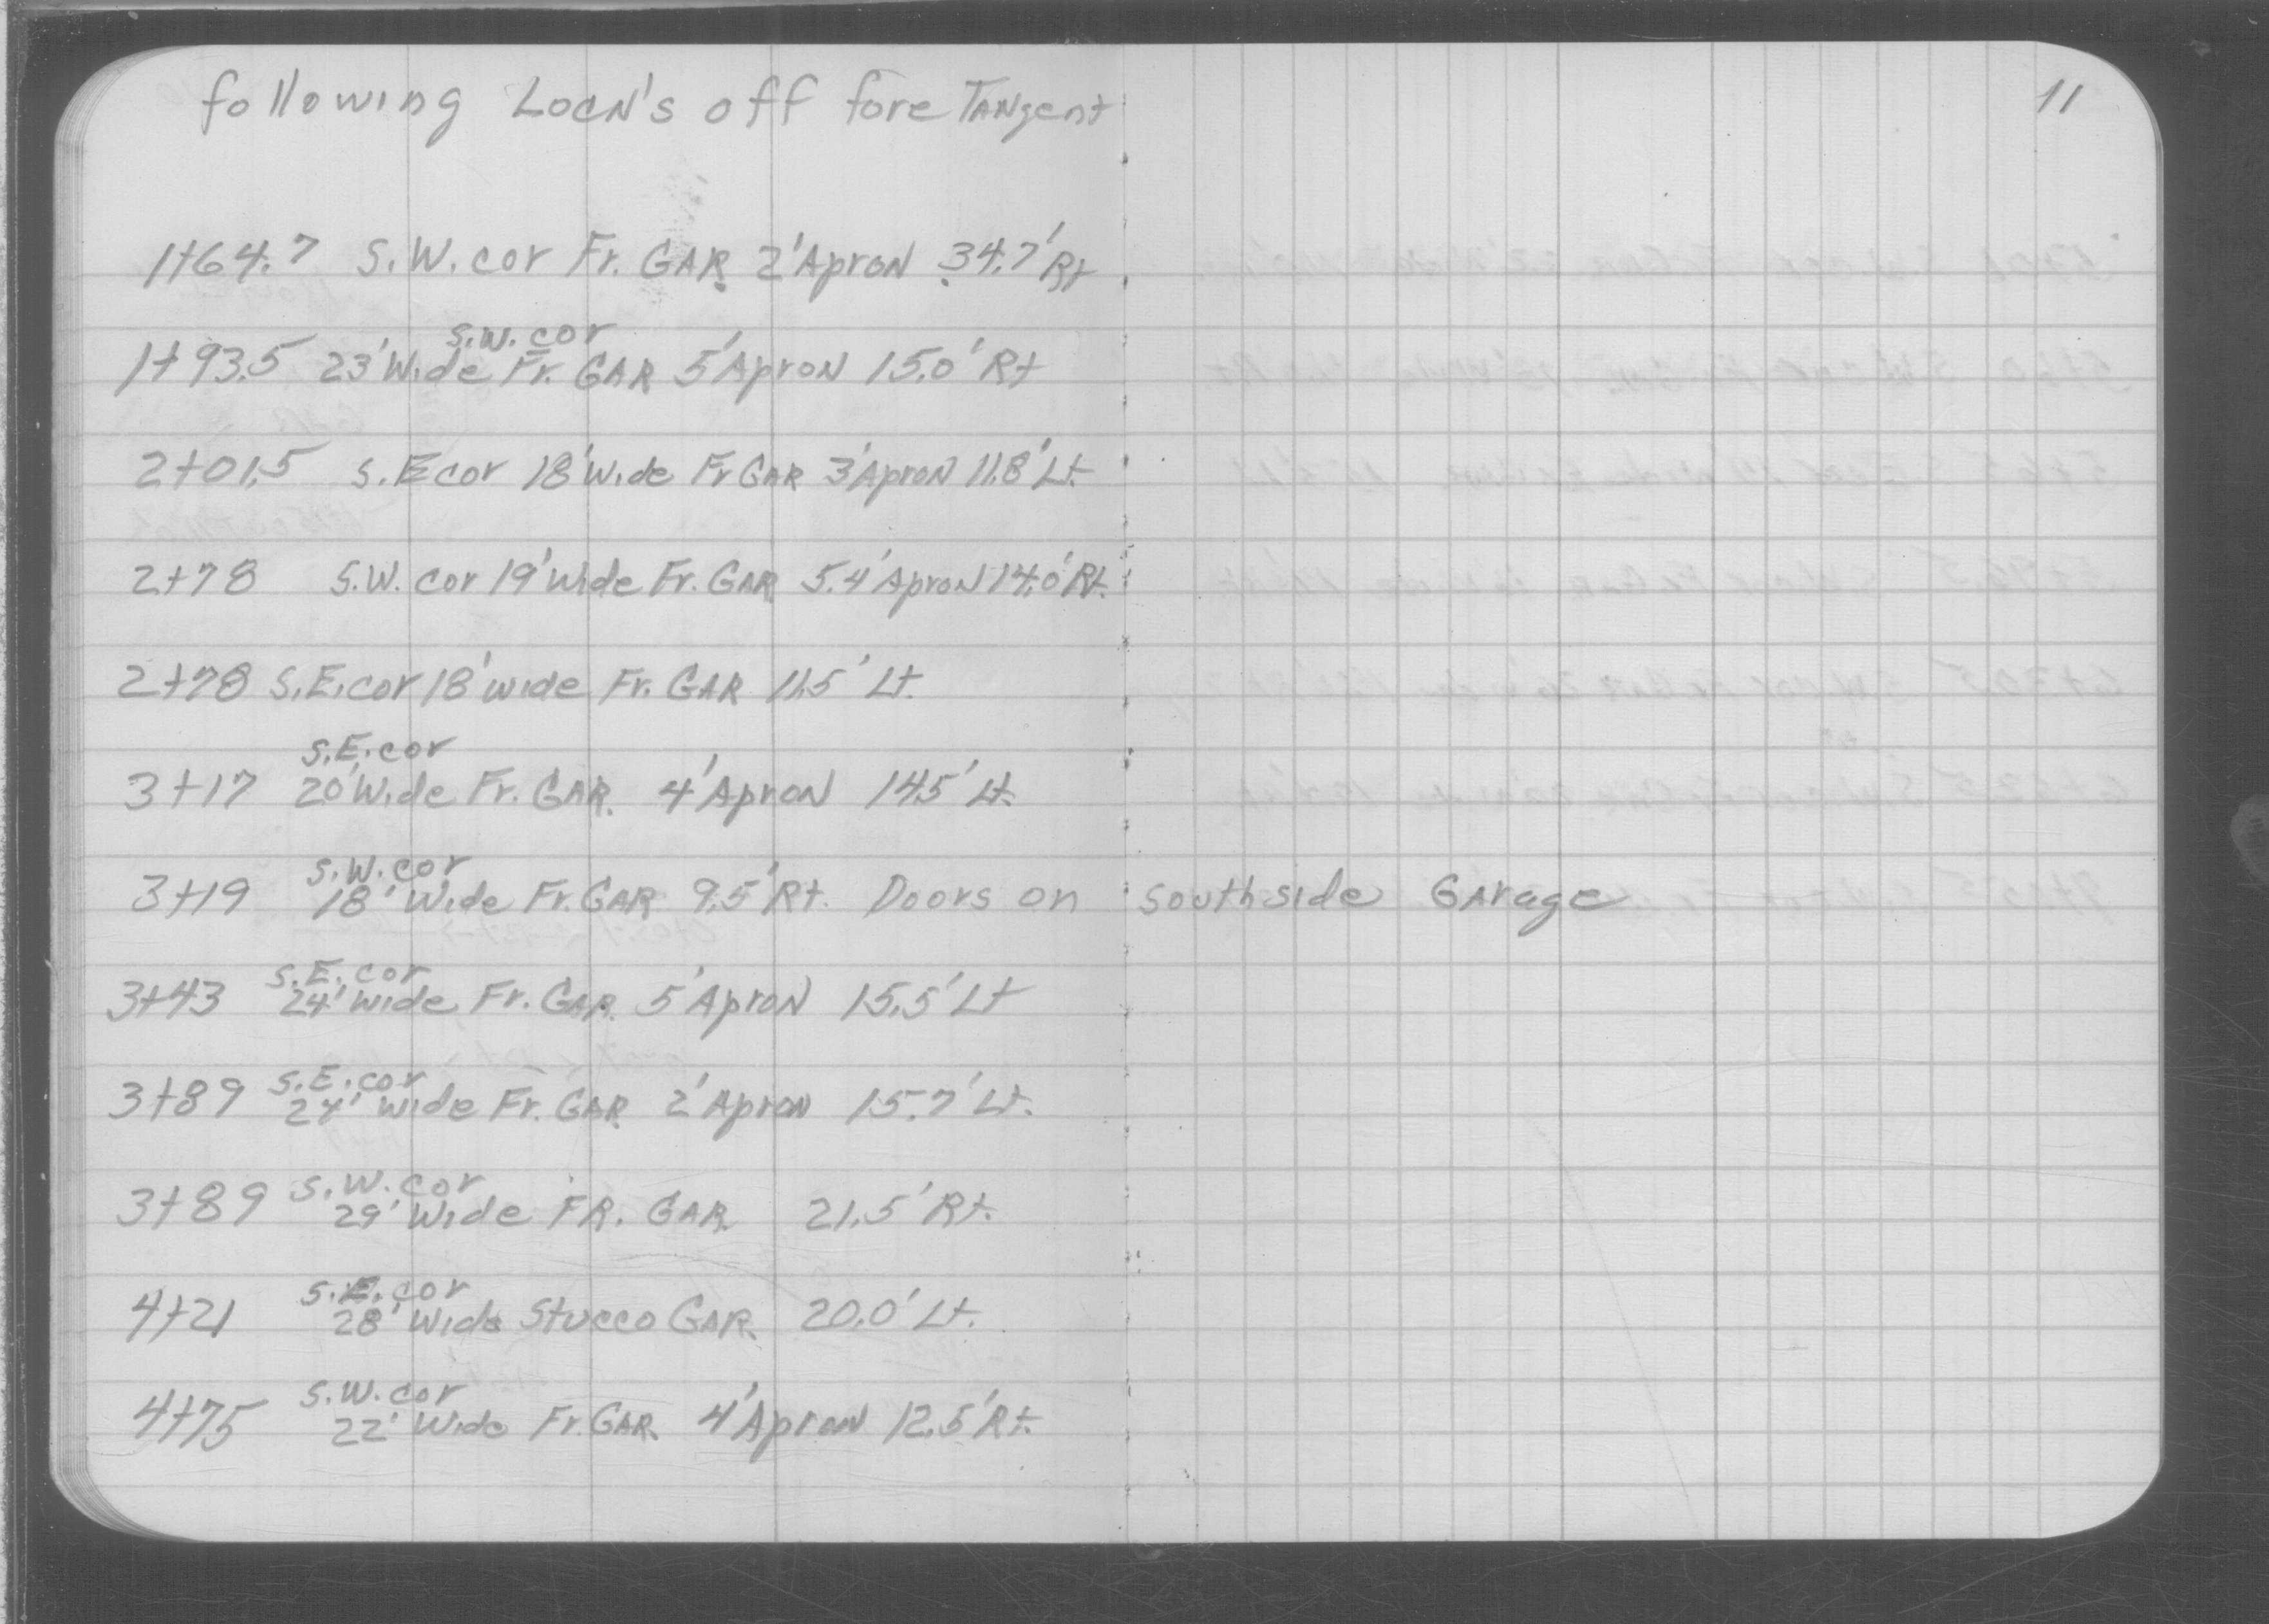 following Locn's off fore Tangent
11
1+64.7 S.W. cor Fr. GAR. 2' Apron 34.7' Rt
S.W. cor
1+93.5 23' Wide Fr. GAR 5' Apron 15.0' Rt
2+01.5 S.E cor 18' Wide Fr GAR 3' Apron 11.8' Lt.
2+78 S.W. cor 19' Wide Fr. GAR. 5.4' Apron 14.0' Rt.
2+78 S.E. cor 18' wide Fr. GAR 11.5' Lt.
S.E. cor
3+17 20' Wide Fr. GAR. 4' Apron 14.5' Lt.
S.W. cor
3+19 18' Wide Fr. GAR 9.5' Rt. Doors on South side Garage
S.E. cor
3+43 24' wide Fr. GAR. 5' Apron 15.5' Lt
S.E. cor
3+89 24' wide Fr. GAR 2' Apron 15.7' Lt.
S.W. cor
3+89 29' Wide FR. GAR. 21.5' Rt.
S.E. cor
4+21 28' Wide Stucco GAR. 20.0' Lt.
S.W. cor
4+75 22' Wide Fr. GAR. 4' Apron 12.5' Rt.